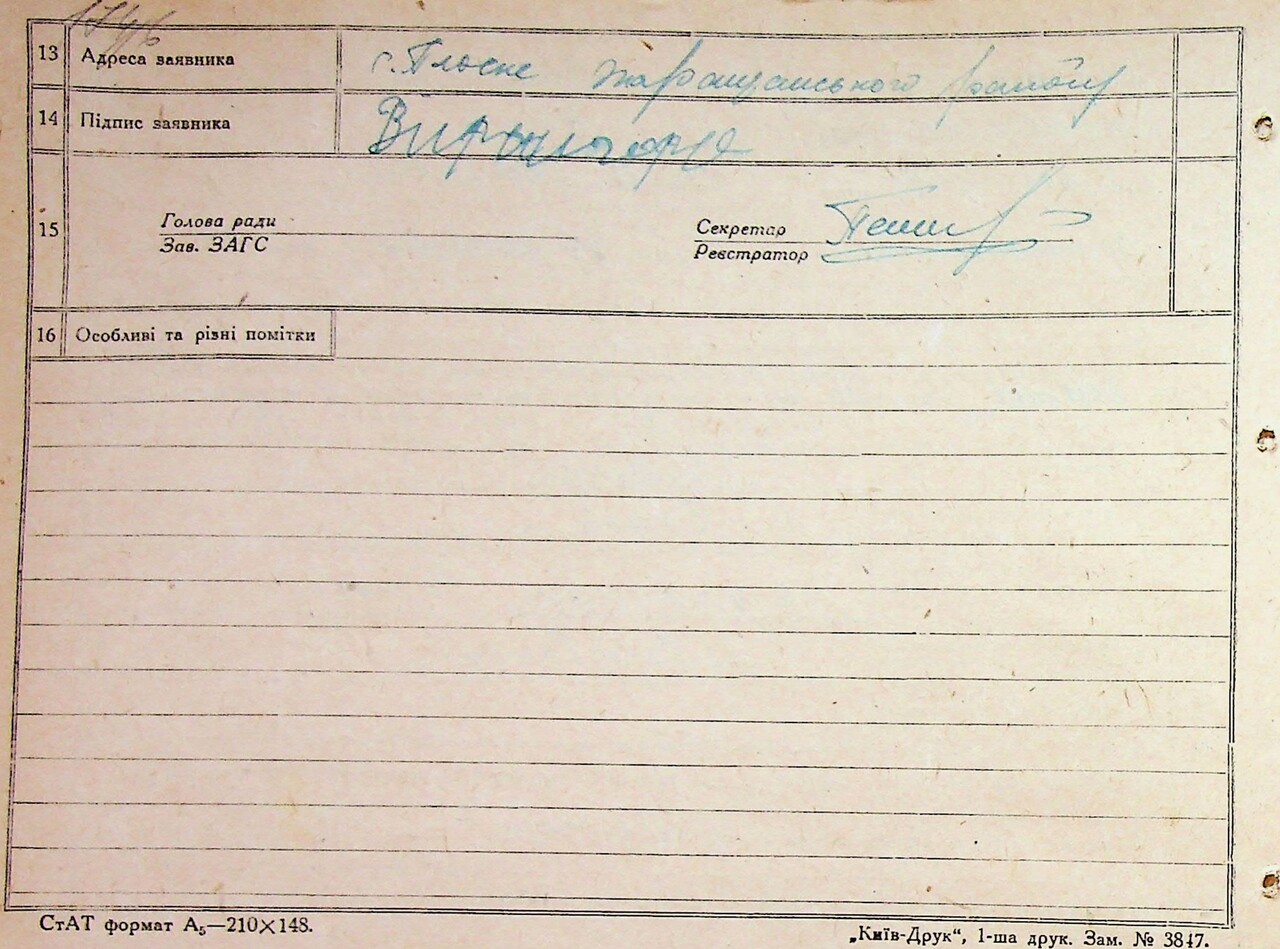 13 Адреса заявника с. Плоске Таращанського району
14 Підпис заявника
15 Голова ради Секретар
Зав. ЗАГС Реєстратор
16 Особливі та різні помітки
СтАТ формат А₅—210×148. „Київ-Друк“, 1-ша друк. Зам. № 3847.